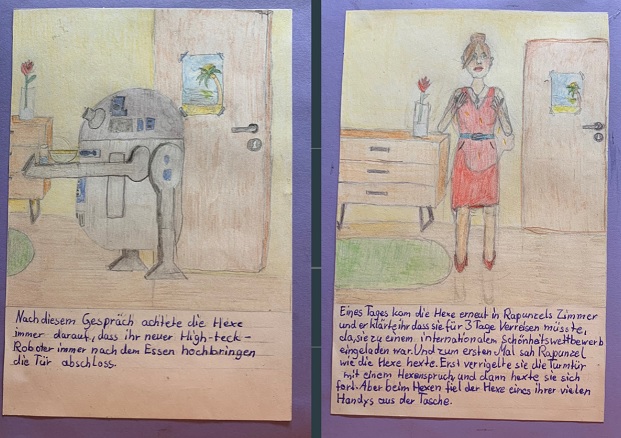 Nach diesem Gespräch achtete die Hexe
immer darauf, dass ihr neuer High-teck-
Roboter immer nach dem Essen hochbringen
die Tür abschloss.
Eines Tages kam die Hexe erneut in Rapunzels Zimmer
und erklärte ihr dass sie für 3 Tage Verreisen müsste,
da, sie zu einem internationalem Schönheitswettbewerb
eingeladen war. Und zum ersten Mal sah Rapunzel
wie die Hexe hexte. Erst verrigelte sie die Turmtür
mit einem Hexenspruch und dann hexte sie sich
fort. Aber beim Hexen fiel der Hexe eines ihrer vielen
Handys aus der Tasche.